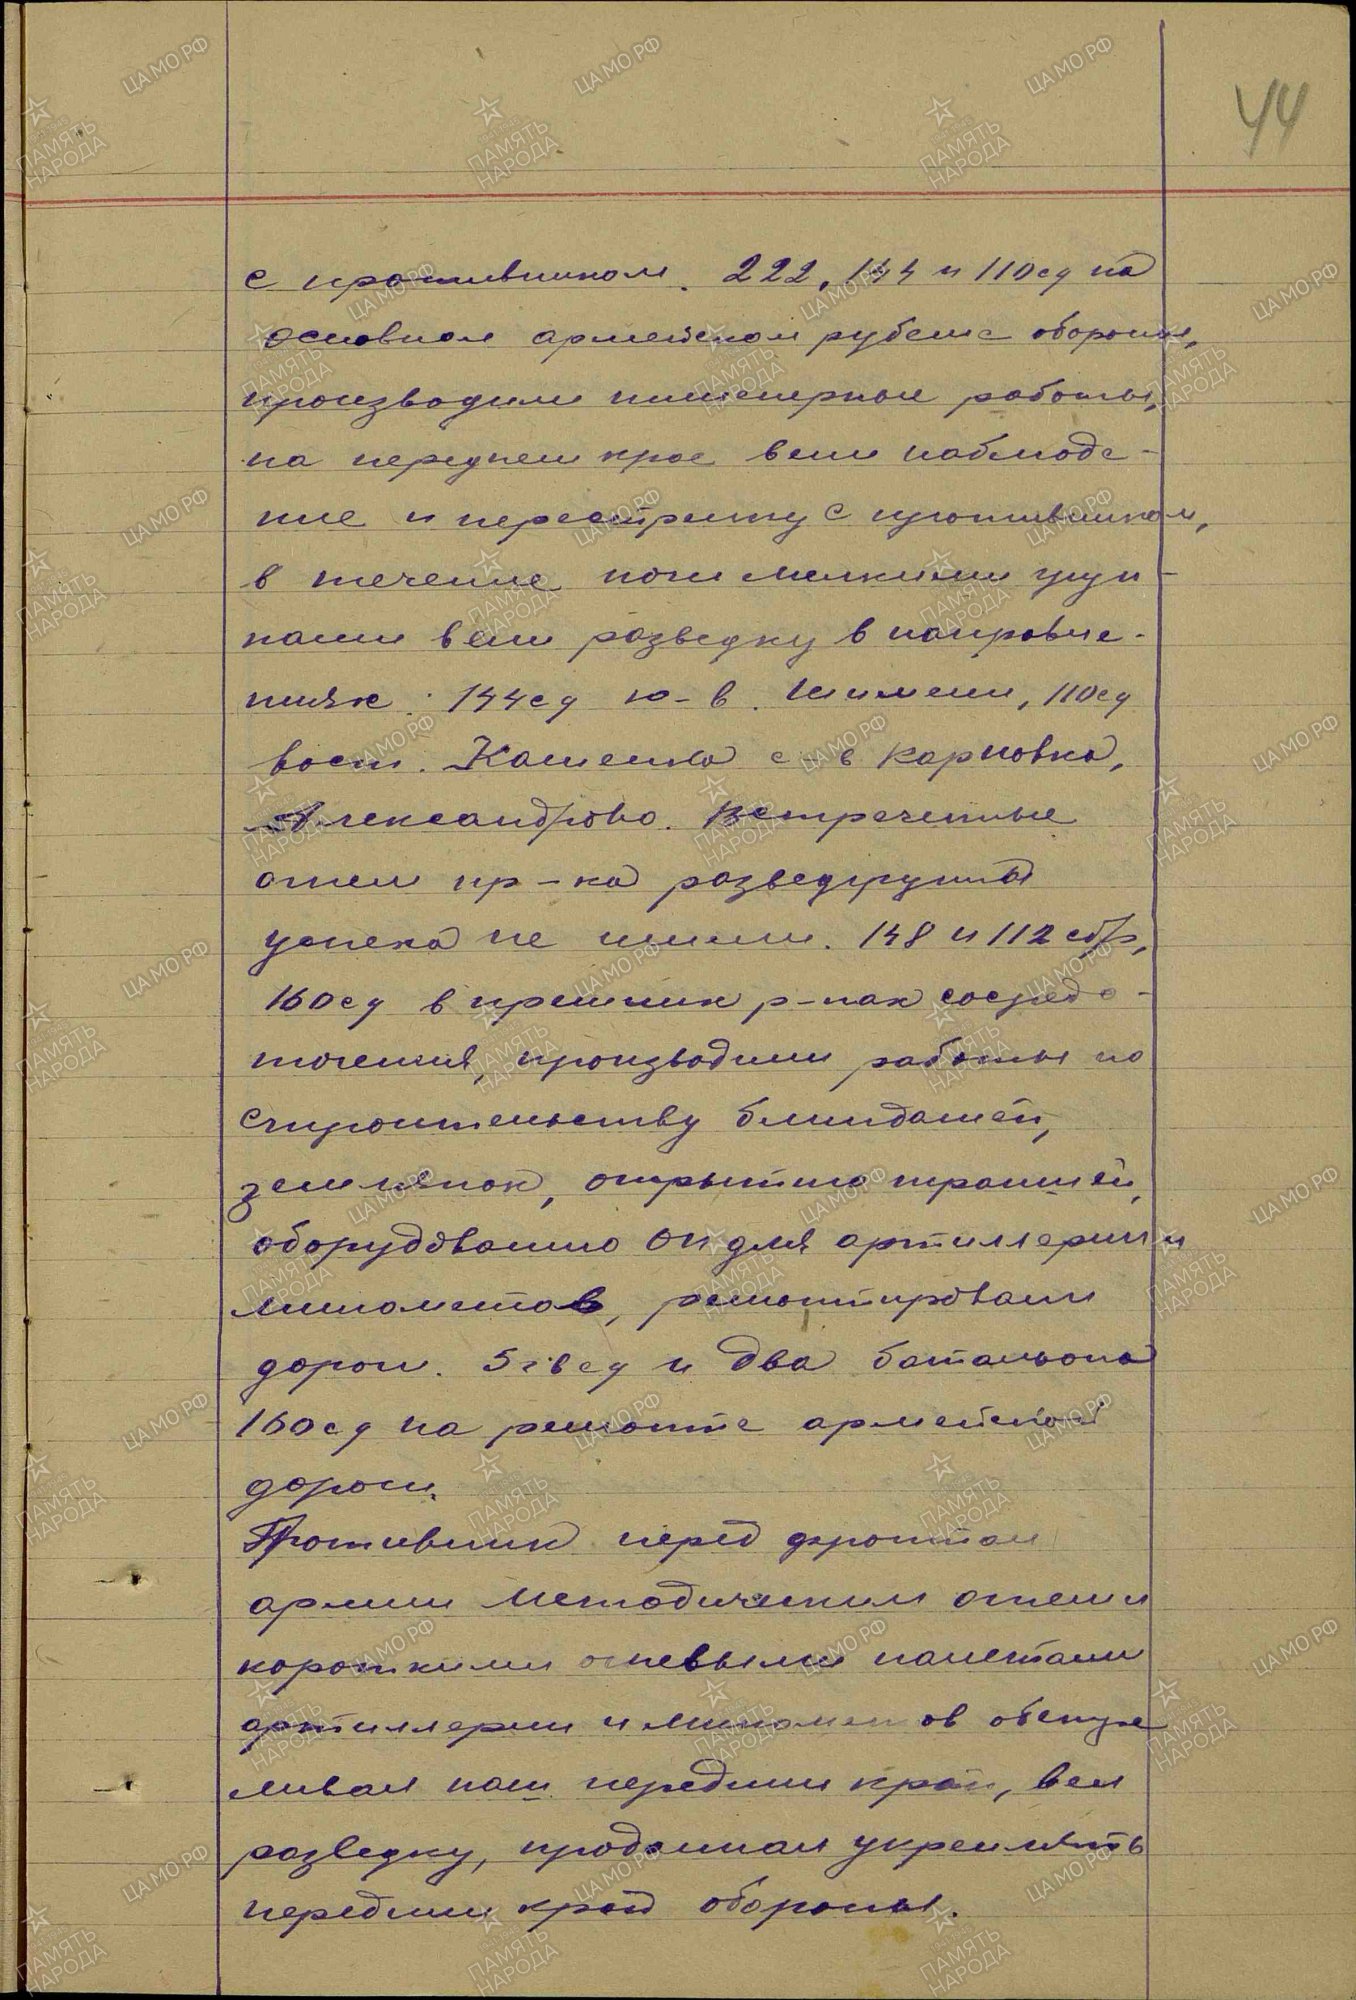 44
с противником. 222, 144 и 110 сд на
основном армейском рубеже обороны,
производили инженерные работы,
на переднем крае вели наблюде-
ние и перестрелку с противником,
в течение ночи мелкими груп-
пами вели разведку в направле-
ниях: 144 сд ю-в. 110 сд
вост. с-в Карповка,
Александрово. Встреченные
огнем пр-ка разведгруппы
успеха не имели. 148 и 112 сбр,
160 сд в прежних р-нах сосредо-
точения, производили работы по
строительству блиндажей,
землянок, открытию траншей,
оборудованию ОП для артиллерии и
минометов, ремонтировали
дороги. 5 гв сд и два батальона
160 сд на ремонте армейской
дороги.
Противник перед фронтом
армии методическим огнем и
короткими огневыми налетами
артиллерии и минометов обстре
ливал наш передний край, вел
разведку, продолжал укреплять
передний край обороны.